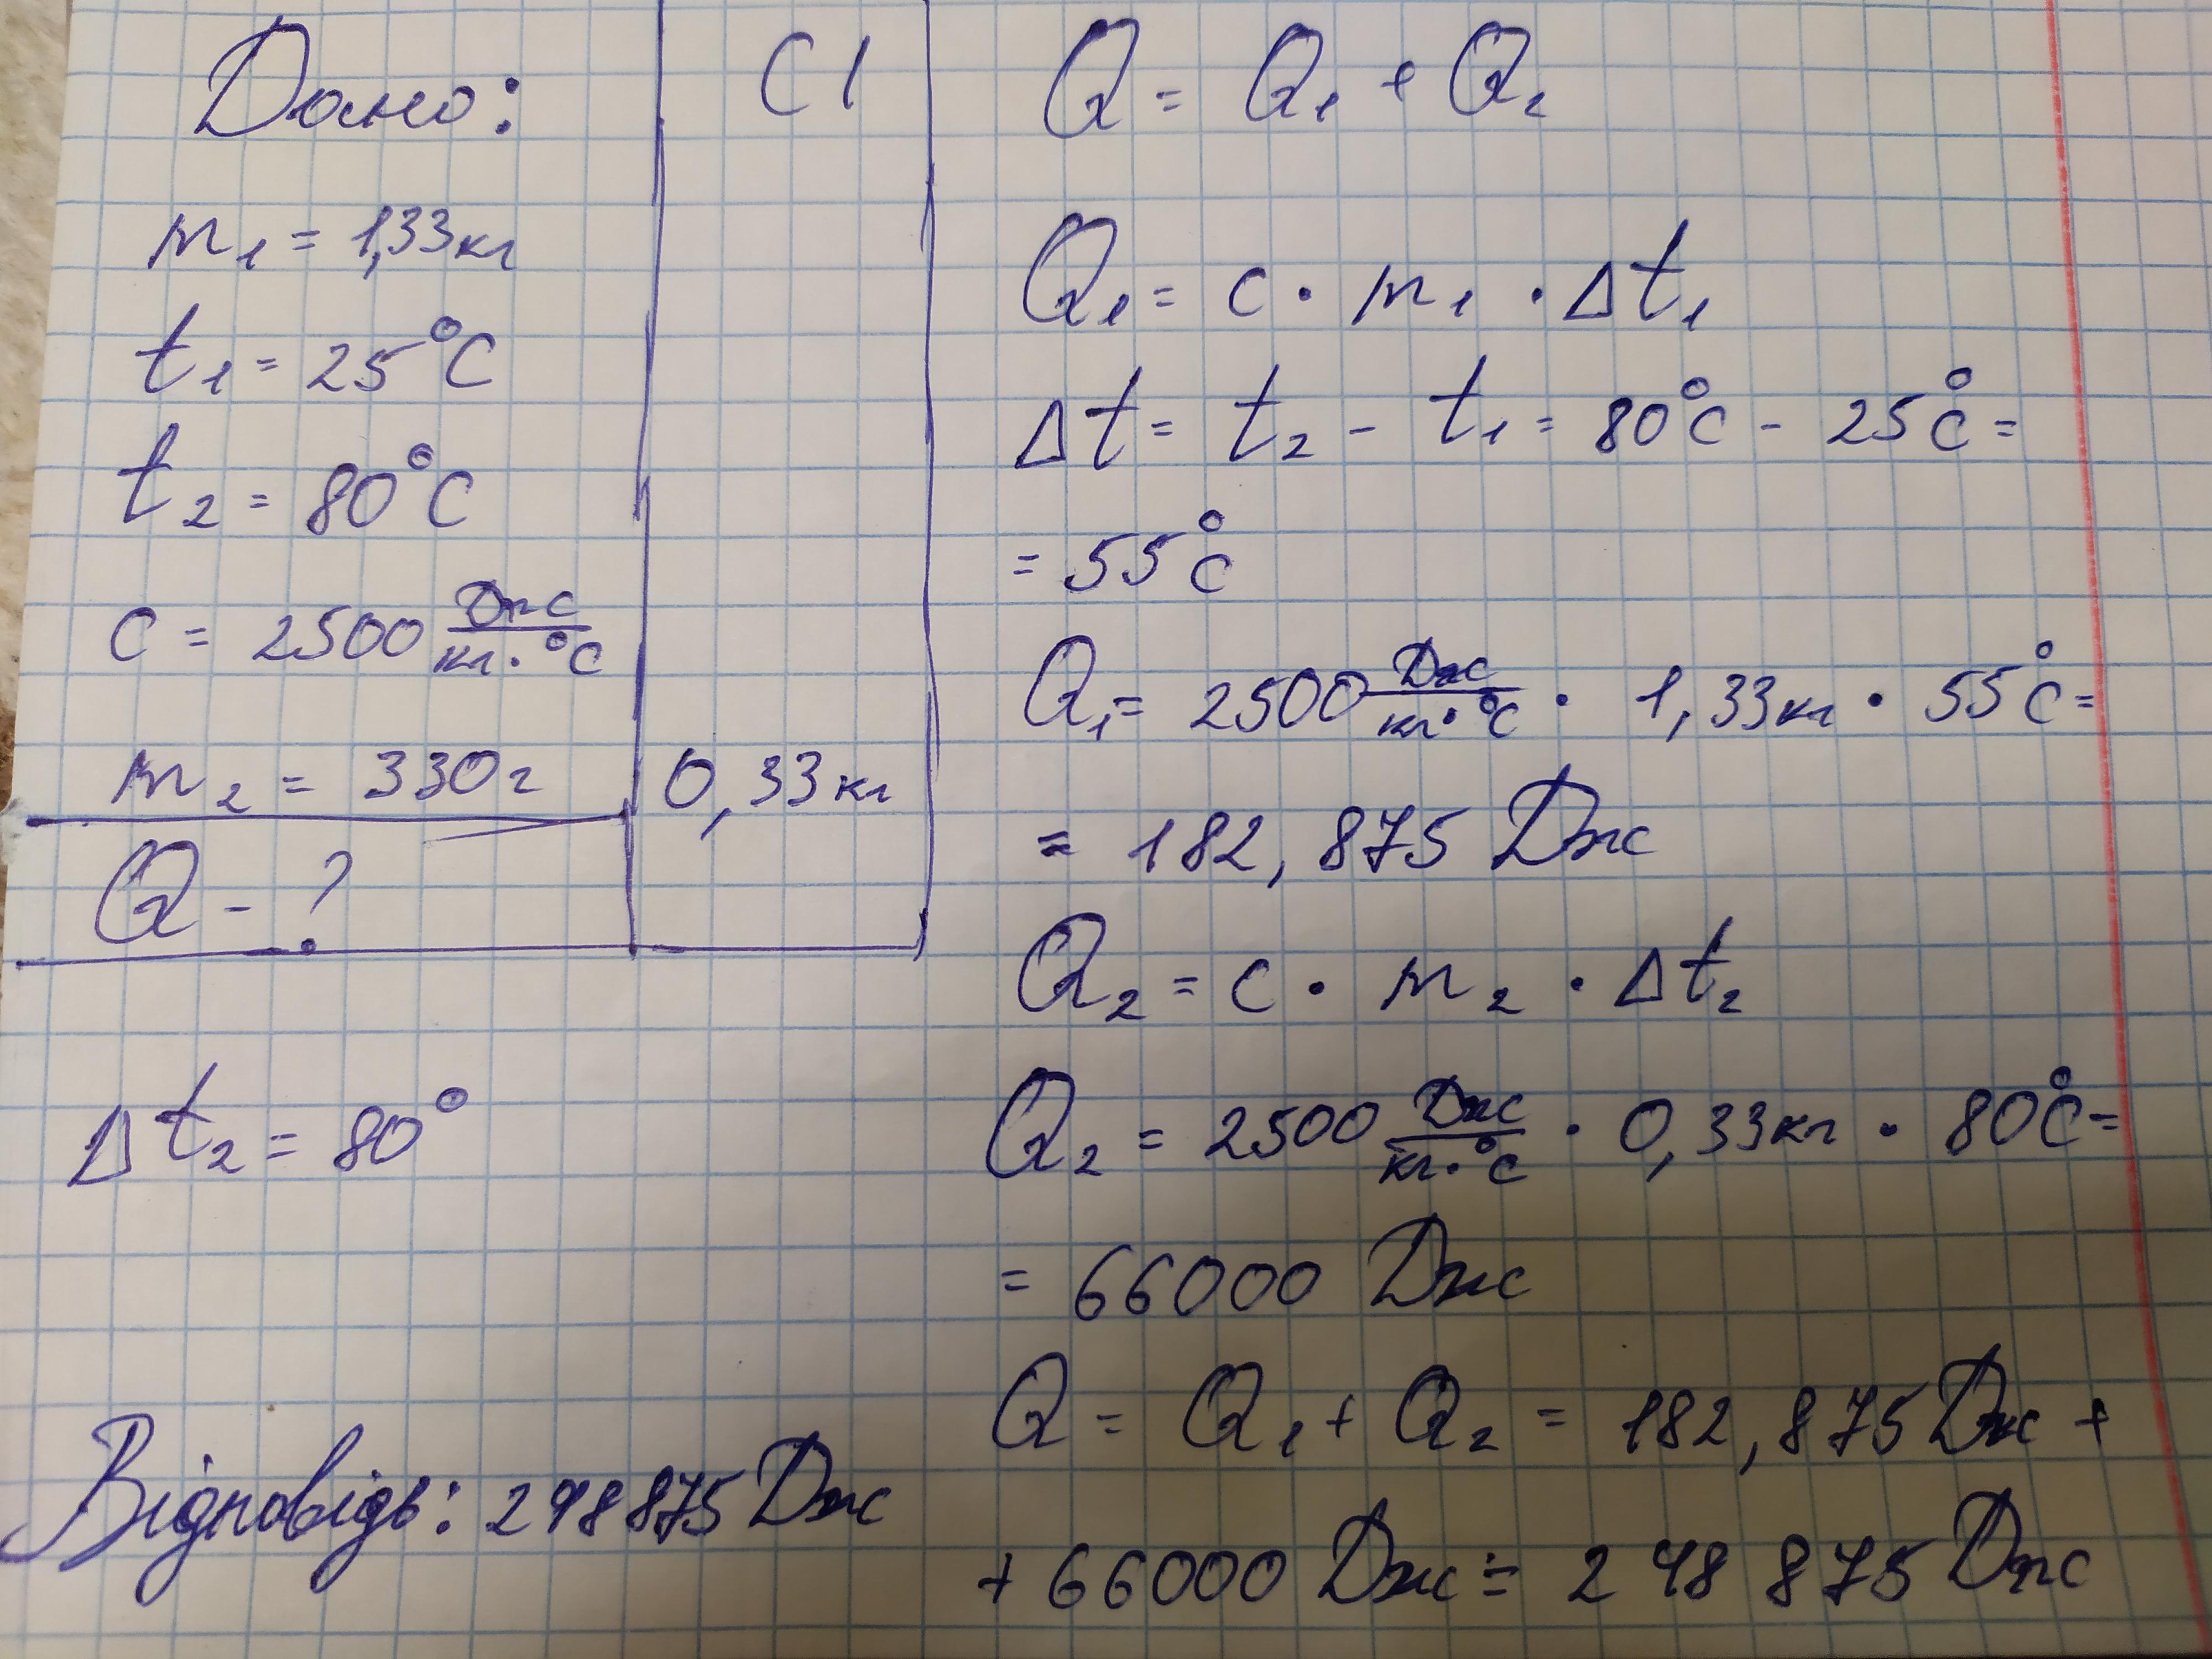 Дано:
СІ
m₁ = 1,33кг
t₁ = 25°C
t₂ = 80°C
c = 2500 Дж/кг·°C
m₂ = 330г
0,33кг
Q - ?
Δt₂ = 80°
Відповідь: 248875 Дж
Q = Q₁ + Q₂
Q₁ = c · m₁ · Δt₁
Δt = t₂ - t₁ = 80°C - 25°C =
= 55°C
Q₁ = 2500 Дж/кг·°C · 1,33кг · 55°C =
= 182,875 Дж
Q₂ = c · m₂ · Δt₂
Q₂ = 2500 Дж/кг·°C · 0,33кг · 80°C =
= 66000 Дж
Q = Q₁ + Q₂ = 182,875 Дж +
+ 66000 Дж = 248 875 Дж